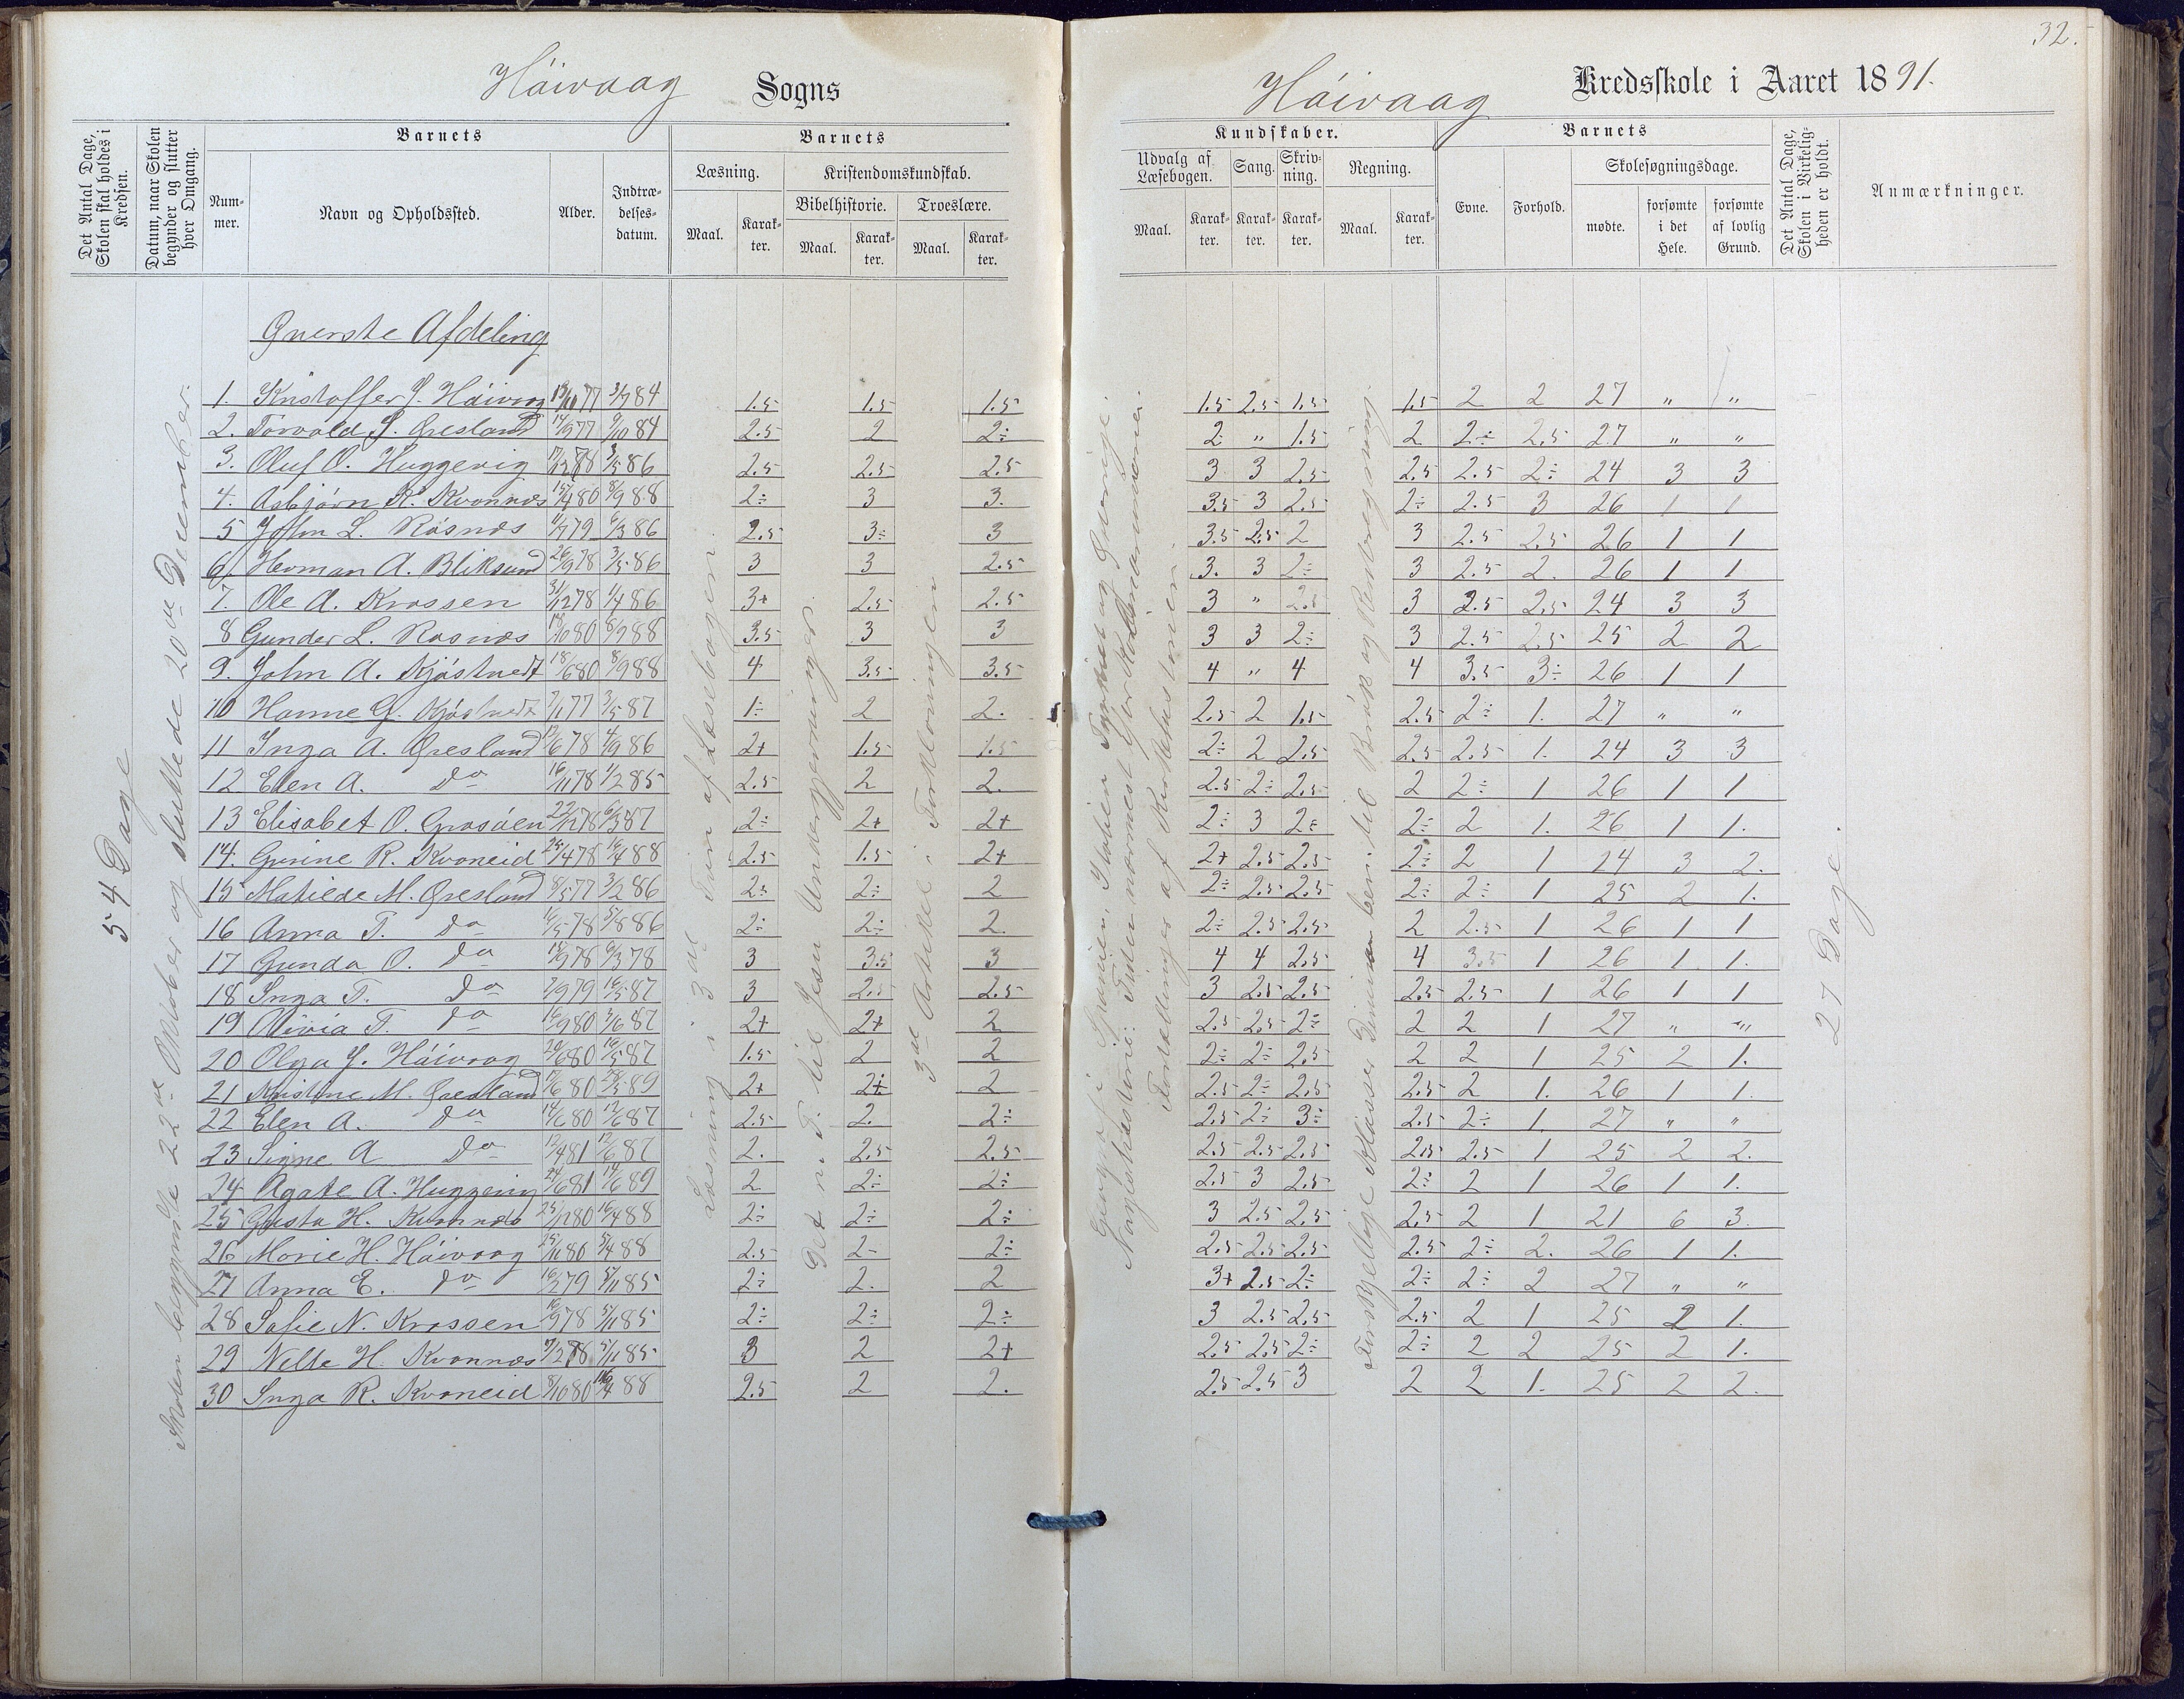 32.
Höivaag Sogns
Höivaag Kredsskole i Aaret 1891.
Det Antal Dage, Skolen skal holdes i Kredsen.
Datum, naar Skolen begynder og slutter hver Omgang.
Barnets
Nummer.
Navn og Opholdssted.
Alder.
Indtrædelsesdatum.
Barnets
Læsning.
Kristendomskundskab.
Bibelhistorie.
Troeslære.
Maal. Karakter. Maal. Karakter. Maal. Karakter.
Kundskaber.
Udvalg af Læsebogen. Sang. Skrivning. Regning.
Maal. Karakter. Karakter. Karakter. Maal. Karakter.
Barnets
Evne. Forhold.
Skolesøgningsdage.
mødte. forsømte i det Hele. forsømte af lovlig Grund.
Det Antal Dage, Skolen i Virkeligheden er holdt.
Anmærkninger.
54 Dage
Skolen begyndte 22de Oktober og sluttede 20de December.
Læsning i 3die Trin af Læsebogen.
Det n. T. til Jesu Undergjerninger.
3die Artikel i Forklaringen
27 Dage.
Øverste Afdeling
1. Kristoffer J. Höivaag 13/10 77 3/9 84 1.5 1.5 1.5 1.5 2.5 1.5 1.5 2 2 27 " "
2. Torvald J. Øresland 14/9 77 9/10 84 2.5 2 2÷ 2 " 1.5 2 2÷ 2.5 27 " "
3. Oluf O. Huggevig 17/12 78 3/5 86 2.5 2.5 2.5 3 3 2.5 2.5 2.5 2÷ 24 3 3
4. Asbjörn K. Kvannes 15/4 80 8/9 88 2÷ 3 3. 3.5 3 2.5 2÷ 2.5 3 26 1 1
5 John L. Råsnæs 11/7 79 6/3 86 2.5 3÷ 3 3.5 2.5 2 3 2.5 2.5 26 1 1
6. Herman A. Bliksund 26/9 78 3/5 86 3 3 2.5 3. 3 2÷ 3 2.5 2. 26 1 1
7. Ole A. Krossen 31/12 78 1/4 86 3+ 2.5 2.5 3 " 2.5 3 2.5 2.5 24 3 3
8 Gunder L. Rosnæs 19/10 80 8/9 88 3.5 3 3 3 3 2÷ 3 2.5 2.5 25 2 2
9. John A. Kjöstvedt 18/6 80 8/9 88 4 3.5 3.5 4 " 4 4 3.5 3÷ 26 1 1
10 Hanne G. Kjöstvedt 7/1 77 3/5 87 1÷ 2 2. 2.5 2 1.5 2.5 2÷ 1. 27 " "
11 Inga A. Øresland 12/6 78 4/9 86 2+ 1.5 1.5 2÷ 2 2.5 2.5 2.5 1. 24 3 3
12 Elen A. Do 16/11 78 1/2 85 2.5 2 2. 2.5 2÷ 2.5 2 2÷ 1 26 1 1
13 Elisabet O. Grosöen 22/12 78 6/3 87 2÷ 2+ 2+ 2÷ 3 2÷ 2÷ 2 1. 26 1 1.
14. Gurine R. Kvaneid 25/4 78 16/4 88 2.5 1.5 2+ 2+ 2.5 2.5 2÷ 2 1 24 3 2.
15 Matilde M. Øresland 8/5 77 3/2 86 2÷ 2÷ 2 2÷ 2.5 2.5 2÷ 2÷ 1 25 2 1.
16 Anna T. Do 16/5 78 5/8 86 2÷ 2÷ 2. 2÷ 2.5 2.5 2 2.5 1 26 1 1
17 Gunda O. Do 18/9 78 6/3 78 3 3.5 3 4 4 2.5 4 3.5 1 26 1 1.
18 Inga T. Do 7/9 79 16/5 87 3 2.5 2.5 3 2.5 2.5 2.5 2.5 1 26 1 1
19 Olivia T. Do 16/9 80 3/6 87 2+ 2+ 2 2.5 2.5 2÷ 2 2 1 27 " "
20 Olga J. Höivaag 20/6 80 16/5 87 1.5 2 2 2÷ 2÷ 2.5 2 2 1 25 2 1.
21 Kristine M. Øresland 17/6 80 28/5 89 2+ 2÷ 2 2.5 2÷ 2.5 2.5 2 1. 26 1 1.
22 Elen A. Do 14/6 80 12/6 87 2.5 2. 2÷ 2.5 2÷ 3÷ 2.5 2÷ 1. 27 " "
23 Signe A Do 12/4 81 12/6 87 2. 2.5 2.5 2.5 2.5 2.5 2.5 2.5 1 25 2 2.
24 Agate A. Huggevig 24/6 81 14/6 89 2 2÷ 2÷ 2.5 3 2.5 2÷ 2 1 26 1 1.
25 Gusta H. Kvannes 25/12 80 16/4 88 2÷ 2÷ 2÷ 3 2.5 2.5 2.5 2 1 21 6 3.
26 Marie H. Höivaag 25/11 80 5/4 88 2.5 2÷ 2÷ 2.5 2.5 2.5 2.5 2÷ 2. 26 1 1.
27 Anna E. Do 16/2 79 5/11 85 2÷ 2. 2 3+ 2.5 2÷ 2÷ 2÷ 2 27 " "
28 Sofie N. Krossen 16/9 78 5/11 85 2÷ 2÷ 2÷ 3 2.5 2.5 2.5 2 1 25 2 1.
29 Nelle H. Kvannes 7/2 78 5/11 85 3 2 2+ 2.5 2.5 2÷ 2÷ 2 2 25 2 1.
30 Inga R. Kvaneid 8/10 80 16/4 88 2.5 2 2. 2.5 2.5 3 2 2 1. 25 2 2.